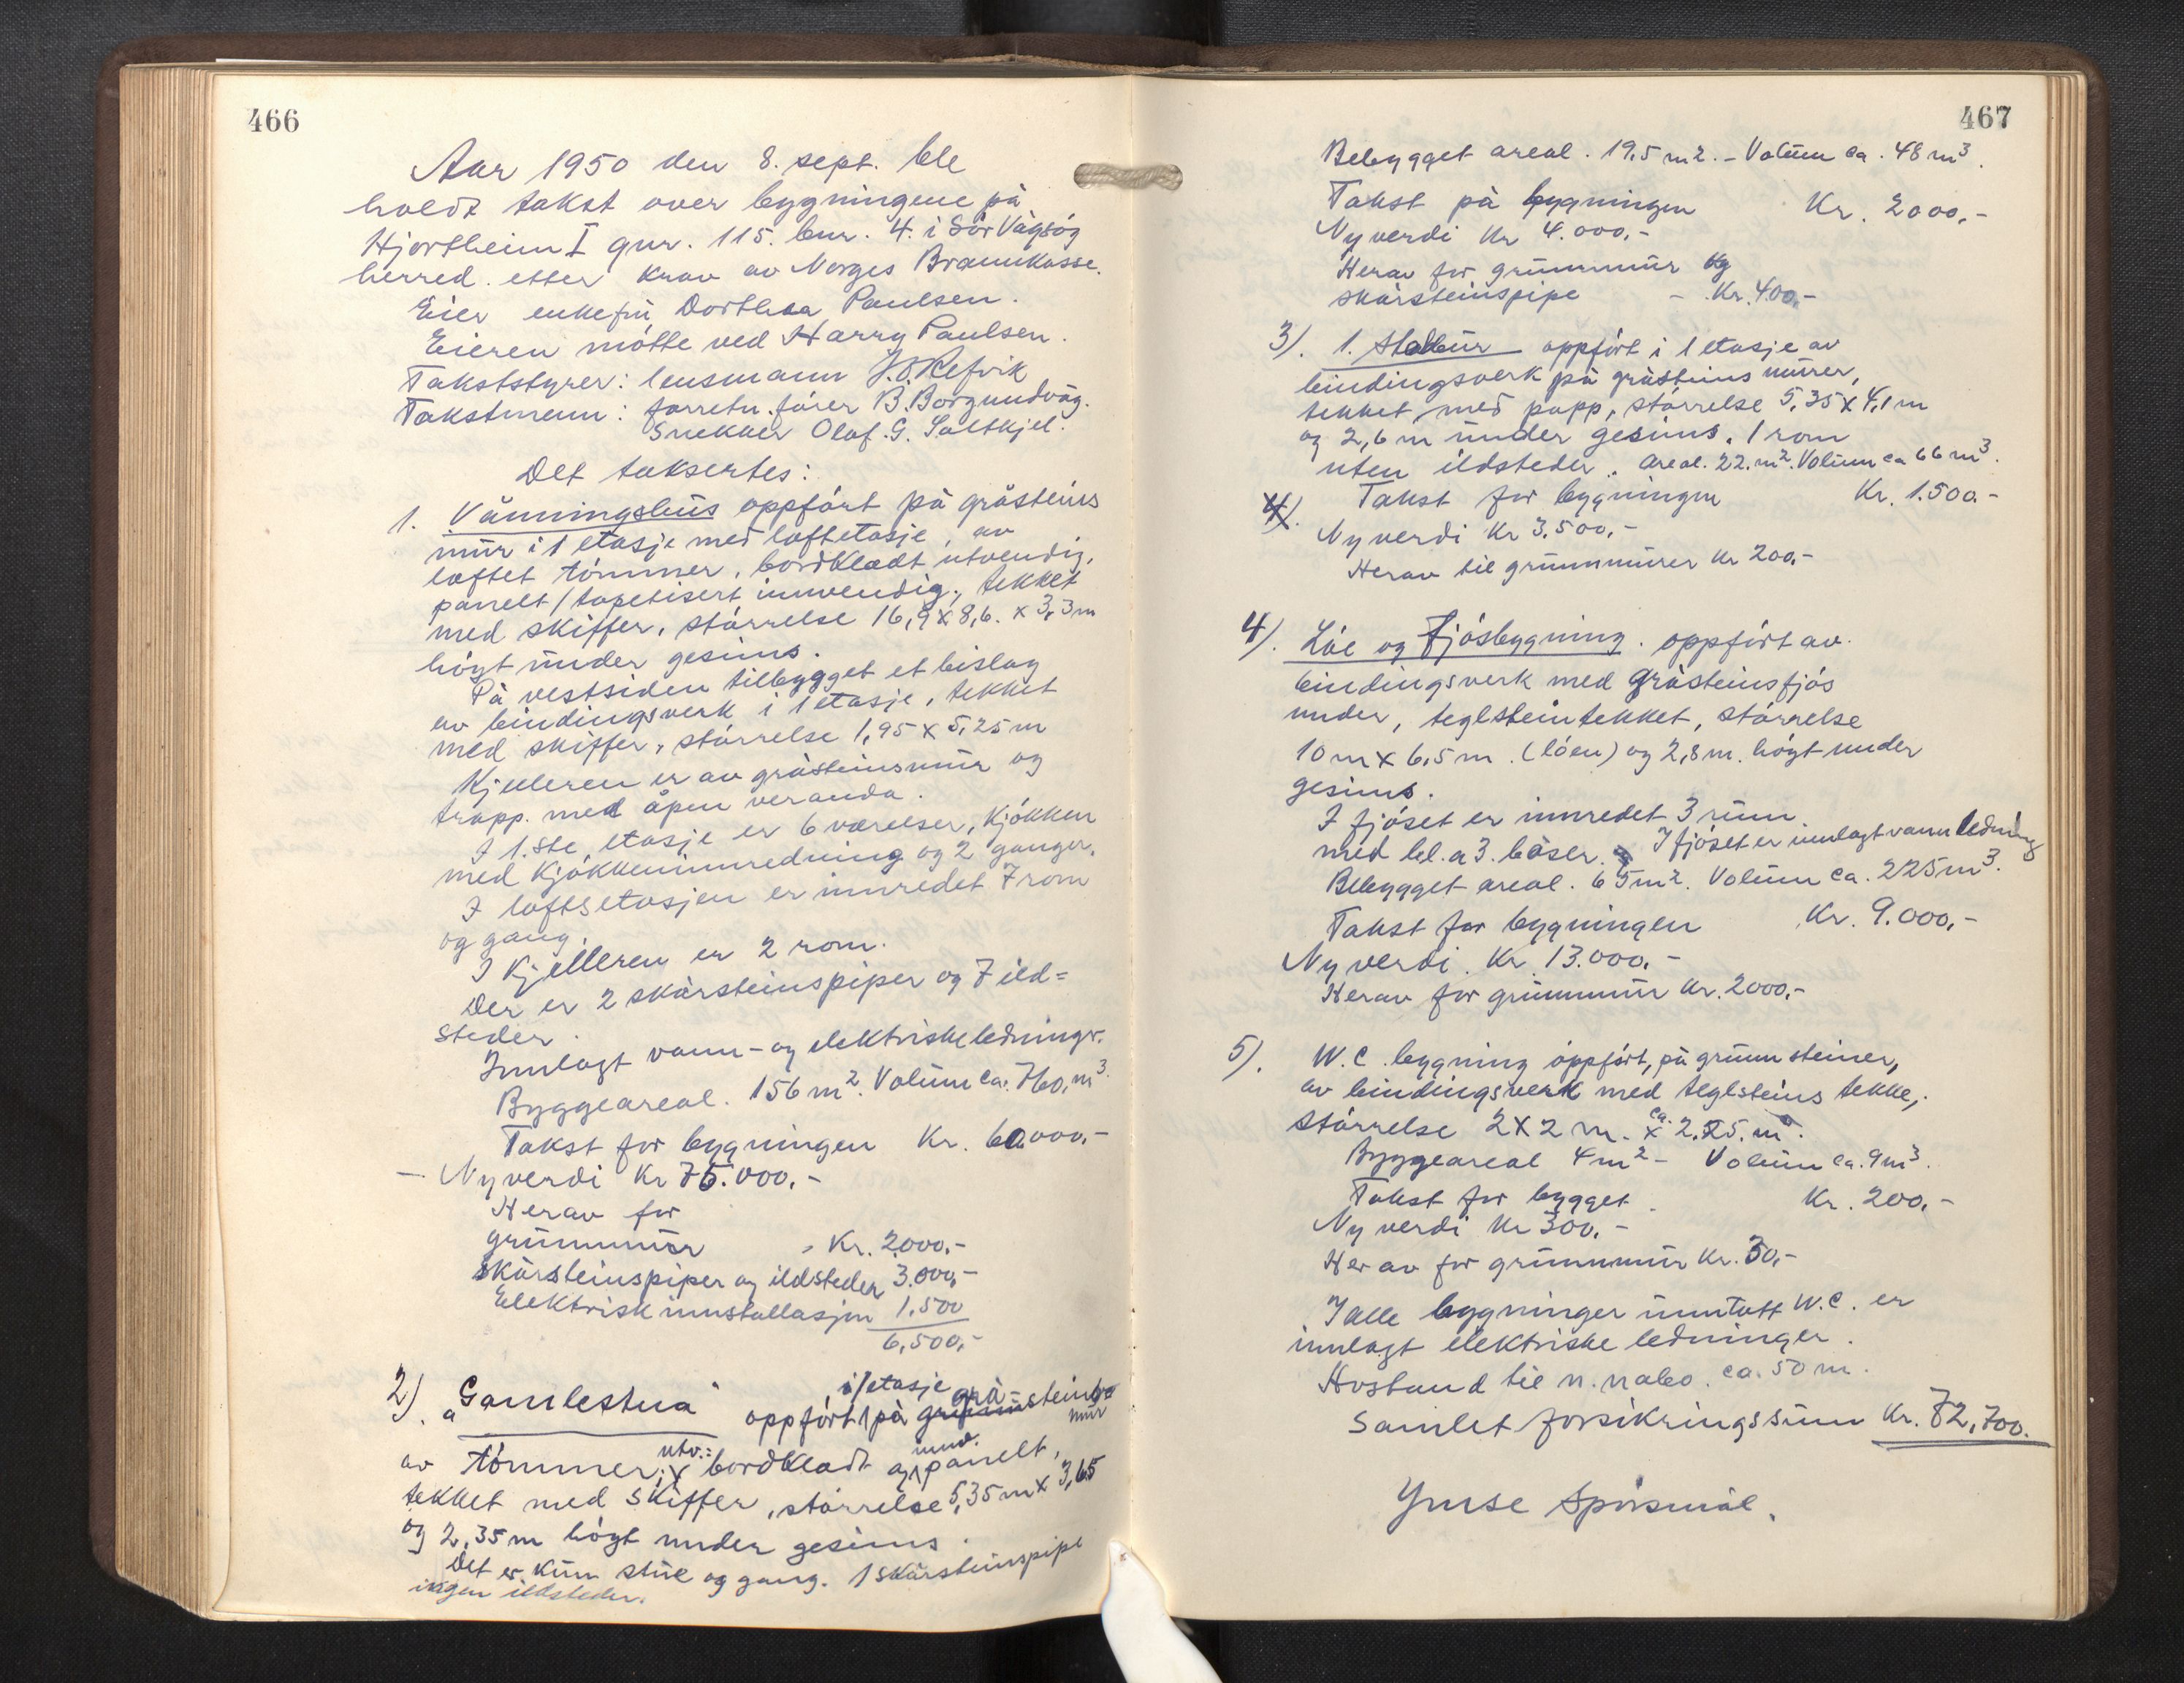 466
Aar 1950 den 8. sept. ble
holdt takst over bygningene på
Hjortheim I gnr. 115. bnr. 4. i Sör Vågsöy
herred etter krav av Norges Brannkasse.
Eier enkefru Dorthea Paulsen.
Eieren mötte ved Harry Paulsen.
Takststyrer: lensmann J.O. Refvik
Takstmenn: forretn.förer B. Borgundvåg.
Snekker Olaf. G. Saltkjel.
Det taksertes:
1. Våningshus oppfört på gråsteins
mur i 1 etasje med loftetasje, av
loftet tömmer, bordkledt utvendig,
panelt/tapetisert innvendig, tekket
med skiffer, störrelse 16,9 x 8,6. x 3,3m
högt under gesims.
På vestsiden tilbygget et bislag
av bindingsverk i 1 etasje, tekket
med skiffer, störrelse 1,95 x 5,25 m
Kjelleren er av gråsteinsmur og
trapp. med åpen veranda.
I 1.ste etasje er 6 værelser, kjökken
med kjökkeninnredning og 2 ganger.
I loftsetasjen er innredet 7 rom
og gang.
I kjelleren er 2 rom.
Der er 2 skårsteinspiper og 7 ild=
steder.
Innlagt vann- og elektriske ledninger.
Byggeareal. 156 m2. Volum ca. 760, m3.
Takst for bygningen Kr. 60.000,-
- Nyverdi Kr 75.000,-
Herav for
grunnmur Kr. 2000,-
skårsteinspiper og ildsteder 3.000,-
Elektrisk innstallasjon 1.500
6,500,-
2). "Gamlestua" oppfört i 1 etasje på grunn grå-steins
mur
av tömmer, utv.: bordkledt og innv. panelt,
tekket med skiffer, störrelse 5,35 m x 3,65
og 2,35 m högt under gesims.
Det er kun stue og gang. 1 skårsteinspipe
ingen ildsteder.
467
Bebygget areal. 19,5 m2. - Volum ca. 48 m3.
Takst på bygningen Kr. 2000,-
Nyverdi Kr 4.000,-
Herav for grunnmur og
skårsteinspipe - Kr. 400,-
3). 1. Stabbur oppfört i 1 etasje av
bindingsverk på gråsteins murer,
tekket med papp, störrelse 5,35 x 4,1 m
og 2,6 m under gesims. 1 rom
uten ildsteder. Areal. 22. m2. Volum ca 66 m3.
4). Takst for bygningen Kr. 1.500.-
Nyverdi Kr 3.500,-
Herav til grunnmurer Kr 200,-
4). Löe og fjösbygning. oppfört av
bindingsverk med gråsteinsfjös
under, teglsteintekket, störrelse
10 m x 6,5 m. (löen) og 2,8 m. högt under
gesims.
I fjöset er innredet 3 rum
med bl.a 3. båser. I fjöset er innlagt vannledning
Bebygget areal. 65 m2. Volum ca. 225 m3.
Takst for bygningen Kr. 9.000,-
Nyverdi. Kr. 13.000,-
Herav for grunnmur Kr. 2000,-
5). W.C. bygning oppfört, på grunnsteiner,
av bindingsverk med teglsteins tekke,
störrelse 2 x 2 m. x ca. 2.25. m.
Byggeareal 4 m2 - Volum ca. 9 m3.
Takst for bygget Kr. 200,-
Nyverdi Kr 300,-
Herav for grunnmur Kr. 30,-
I alle bygninger unntatt W.C. er
innlagt elektriske ledninger.
Avstand til n. nabo. ca. 50 m.
Samlet forsikringssum Kr. 72,700.
Ymse Spörsmål.